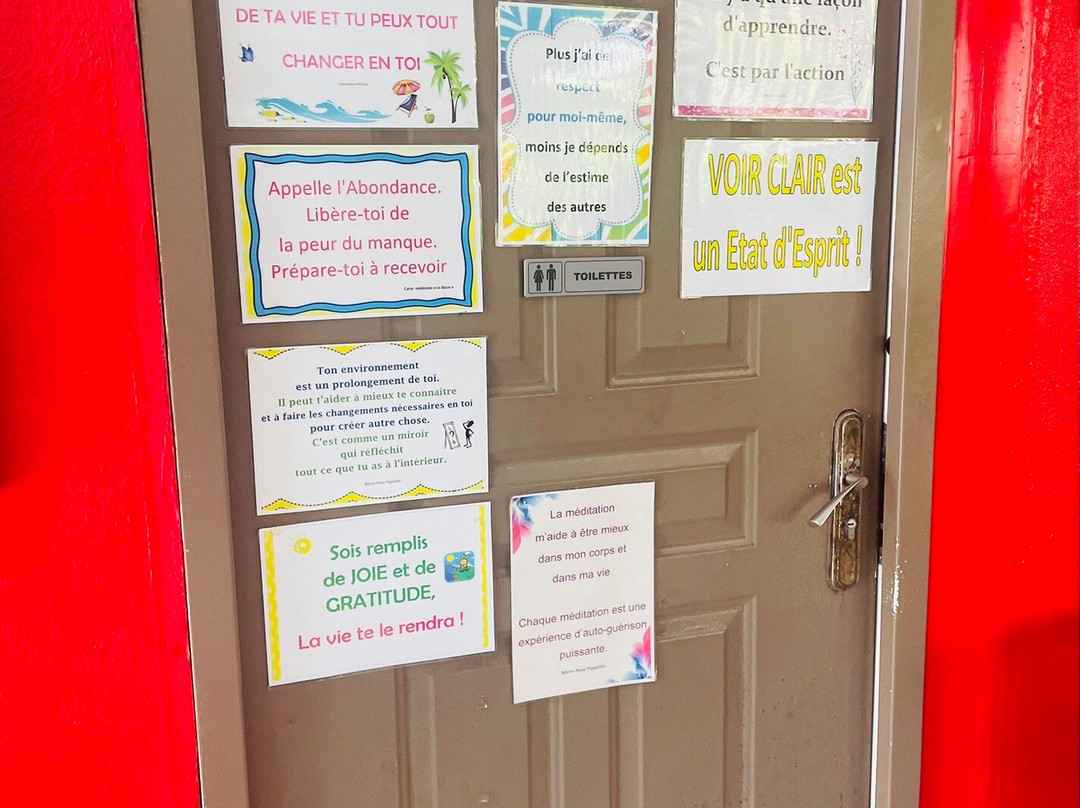 DE TA VIE ET TU PEUX TOUT
CHANGER EN TOI
Plus j'ai de
respect
pour moi-même,
moins je dépends
de l'estime
des autres
d'apprendre.
C'est par l'action
Appelle l'Abondance.
Libère-toi de
la peur du manque.
Prépare-toi à recevoir
VOIR CLAIR est
un Etat d'Esprit !
TOILETTES
Ton environnement
est un prolongement de toi.
Il peut t'aider à mieux te connaître
et à faire les changements nécessaires en toi
pour créer autre chose.
C'est comme un miroir
qui réfléchit
tout ce que tu as à l'intérieur.
Sois remplis
de JOIE et de
GRATITUDE,
La vie te le rendra !
La méditation
m'aide à être mieux
dans mon corps et
dans ma vie.
Chaque méditation est une
expérience d'auto-guérison
puissante.